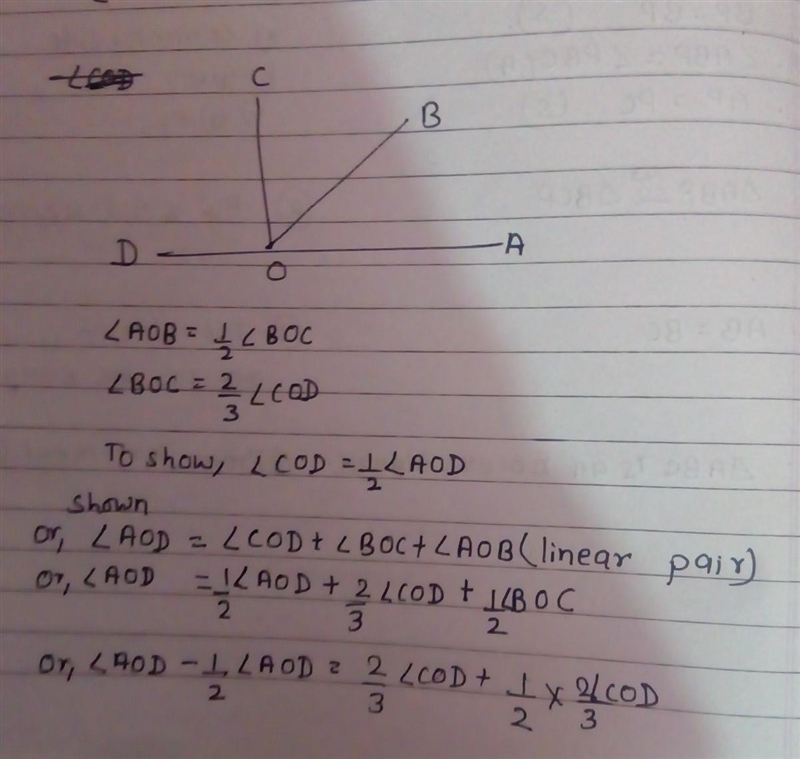 ∠COD
C
B
D
A
O
∠AOB = 1/2 ∠BOC
∠BOC = 2/3 ∠COD
To show, ∠COD = 1/2 ∠AOD
shown
or, ∠AOD = ∠COD + ∠BOC + ∠AOB (linear pair)
or, ∠AOD = 1/2 ∠AOD + 2/3 ∠COD + 1/2 ∠BOC
or, ∠AOD - 1/2 ∠AOD = 2/3 ∠COD + 1/2 × 2/3 ∠COD